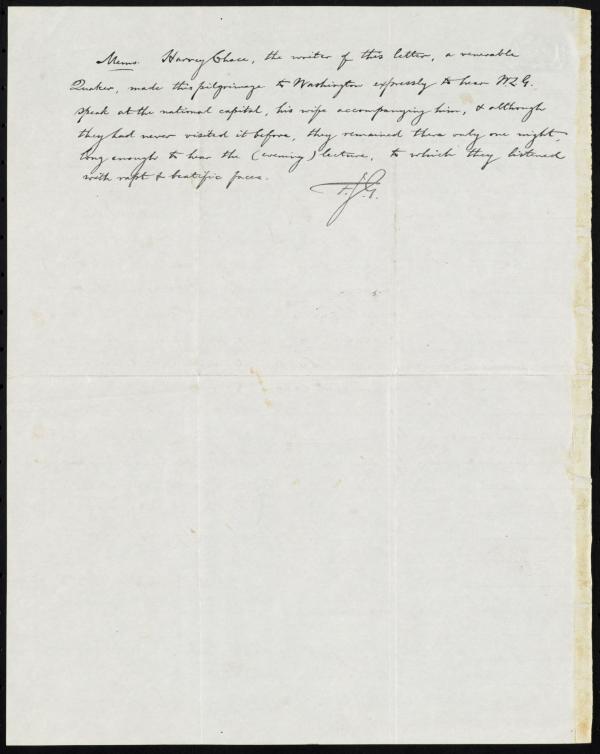 Mem. Harvey Chace, the writer of this letter, a venerable
Quaker, made this pilgrimage to Washington expressly to hear W.L.G.
speak at the national capital, his wife accompanying him, & although
they had never visited it before, they remained there only one night,
long enough to hear the (evening) lecture, to which they listened
with rapt & beatific faces.
F.J.G.